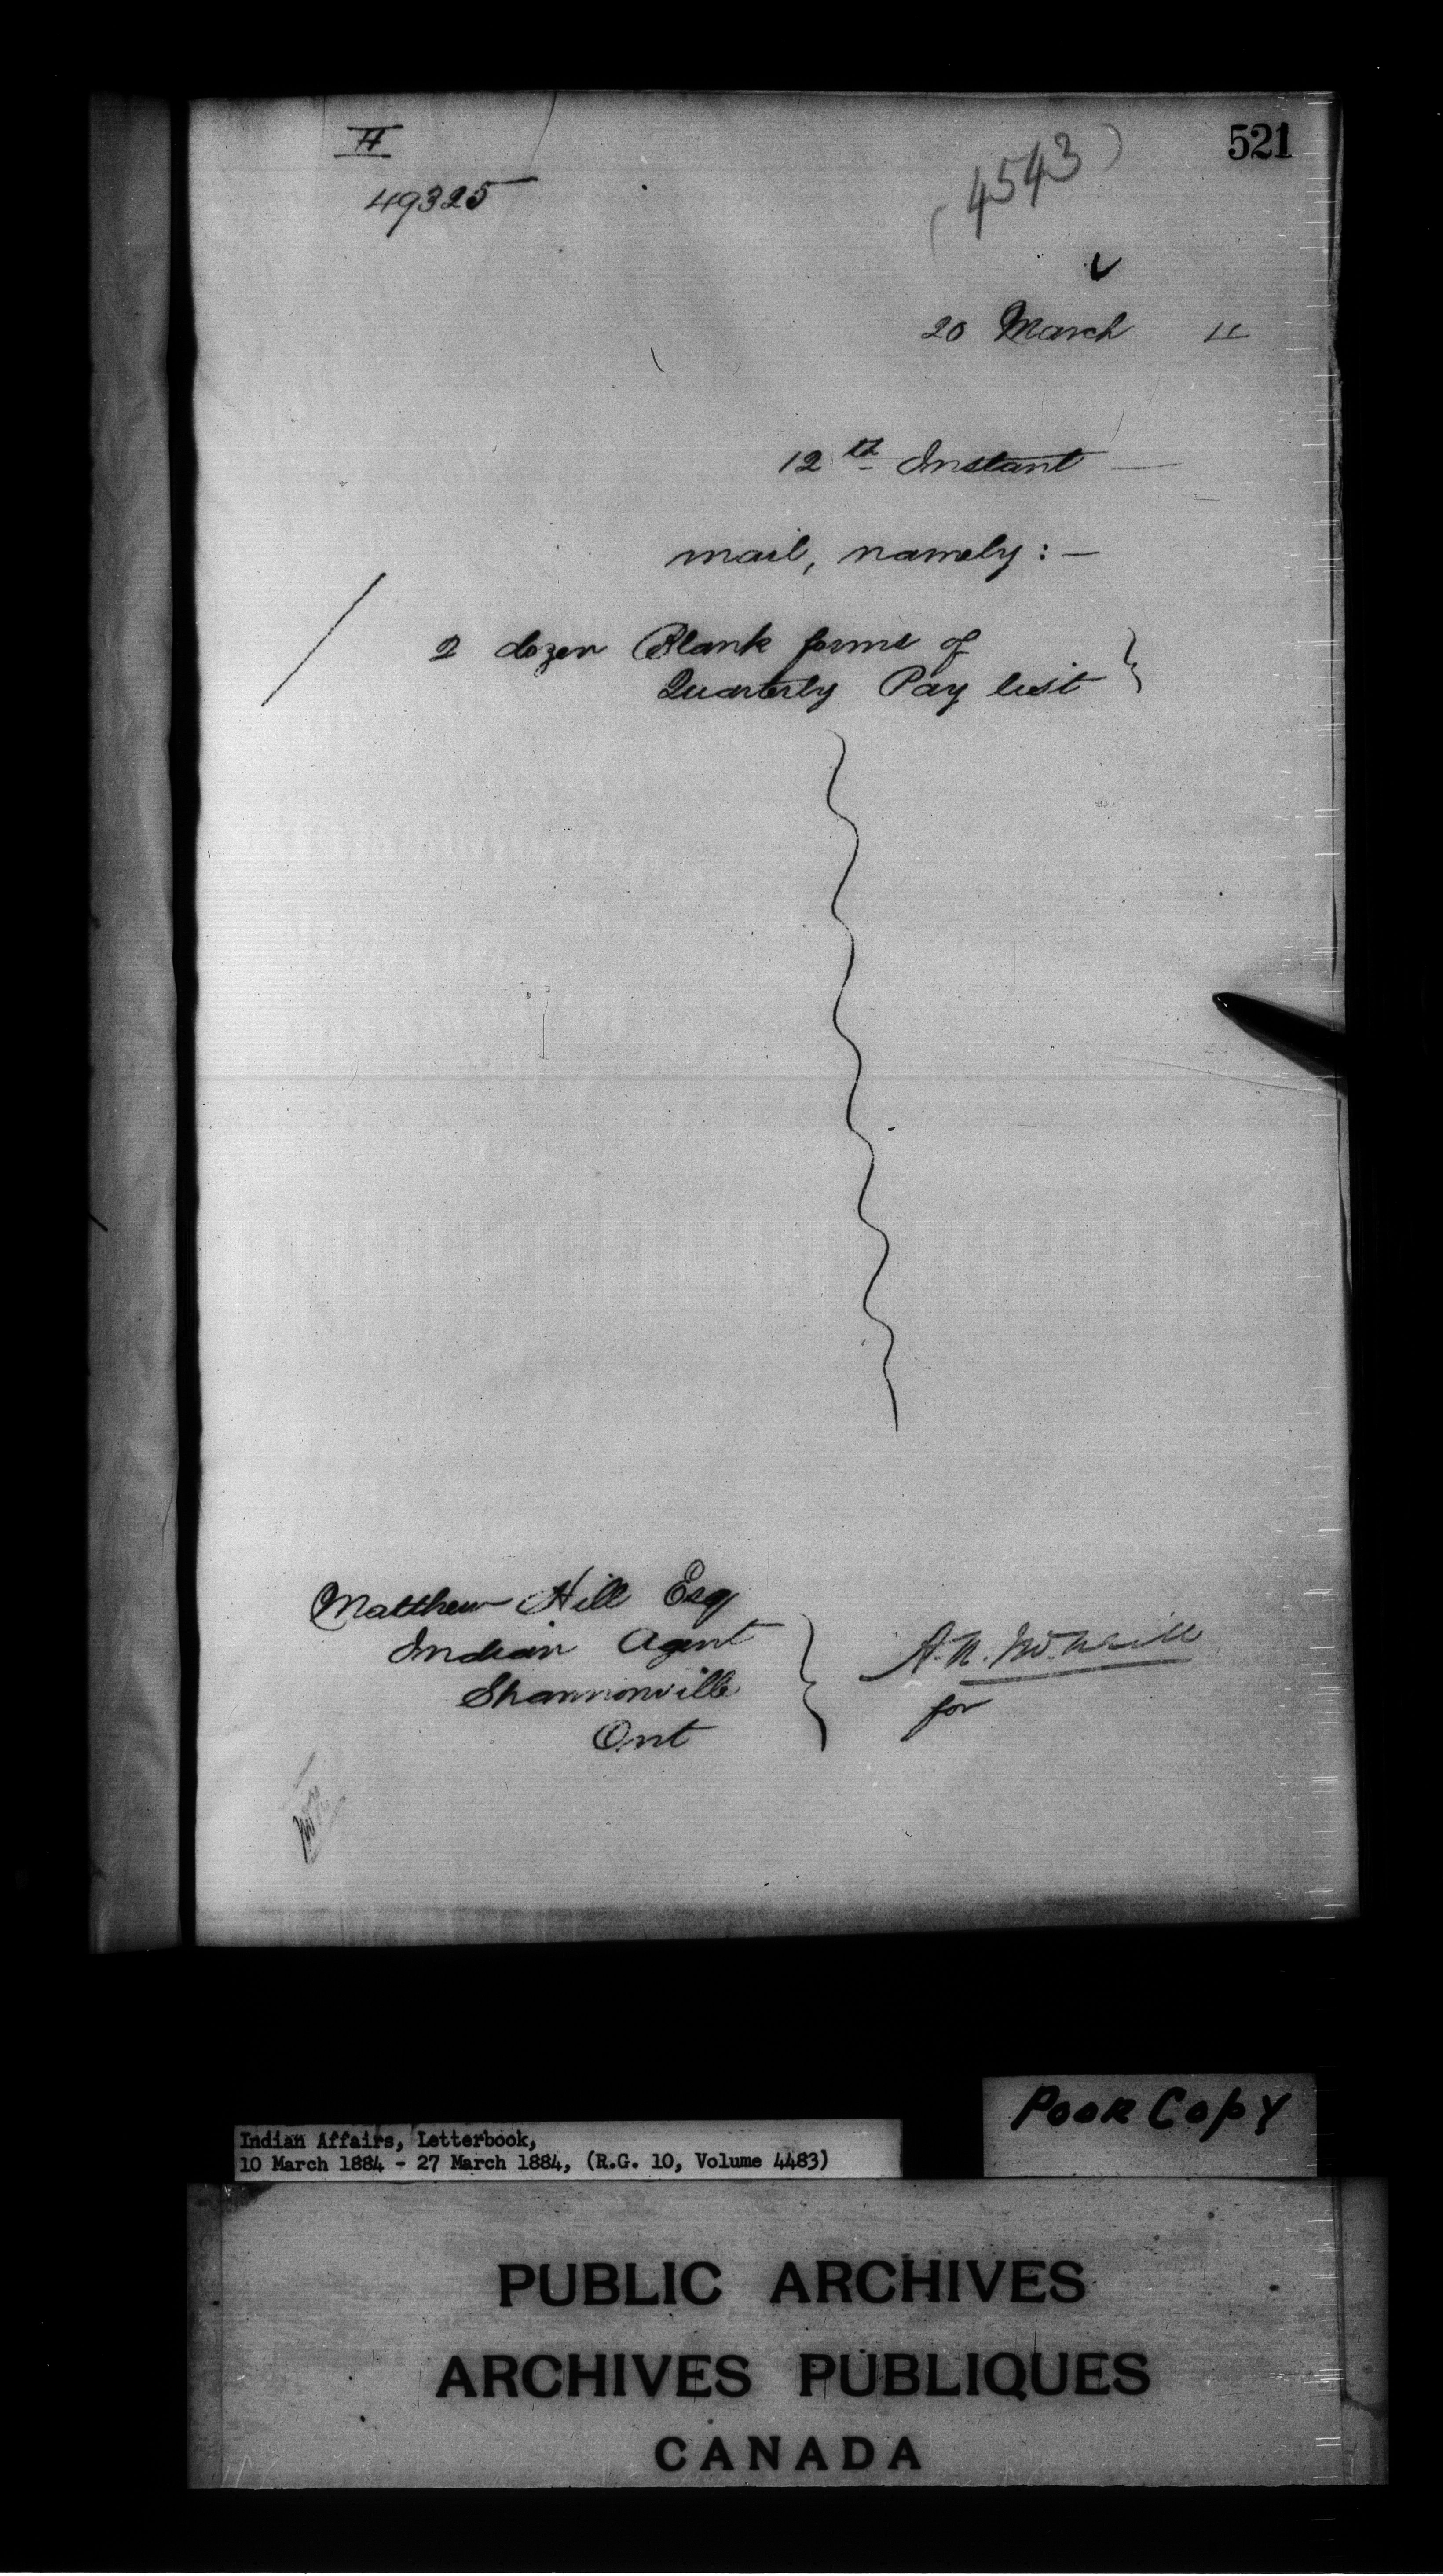 H
521
49325
(4543)
20 March 4
12th Instant —
mail, namely: —
2 dozen Blank forms of
Quarterly Pay list
Matthew Hill Esq
Indian Agent
Shannonville
Ont
A. N. McNeill
for
Poor Copy
Indian Affairs, Letterbook,
10 March 1884 - 27 March 1884, (R.G. 10, Volume 4483)
PUBLIC ARCHIVES
ARCHIVES PUBLIQUES
CANADA